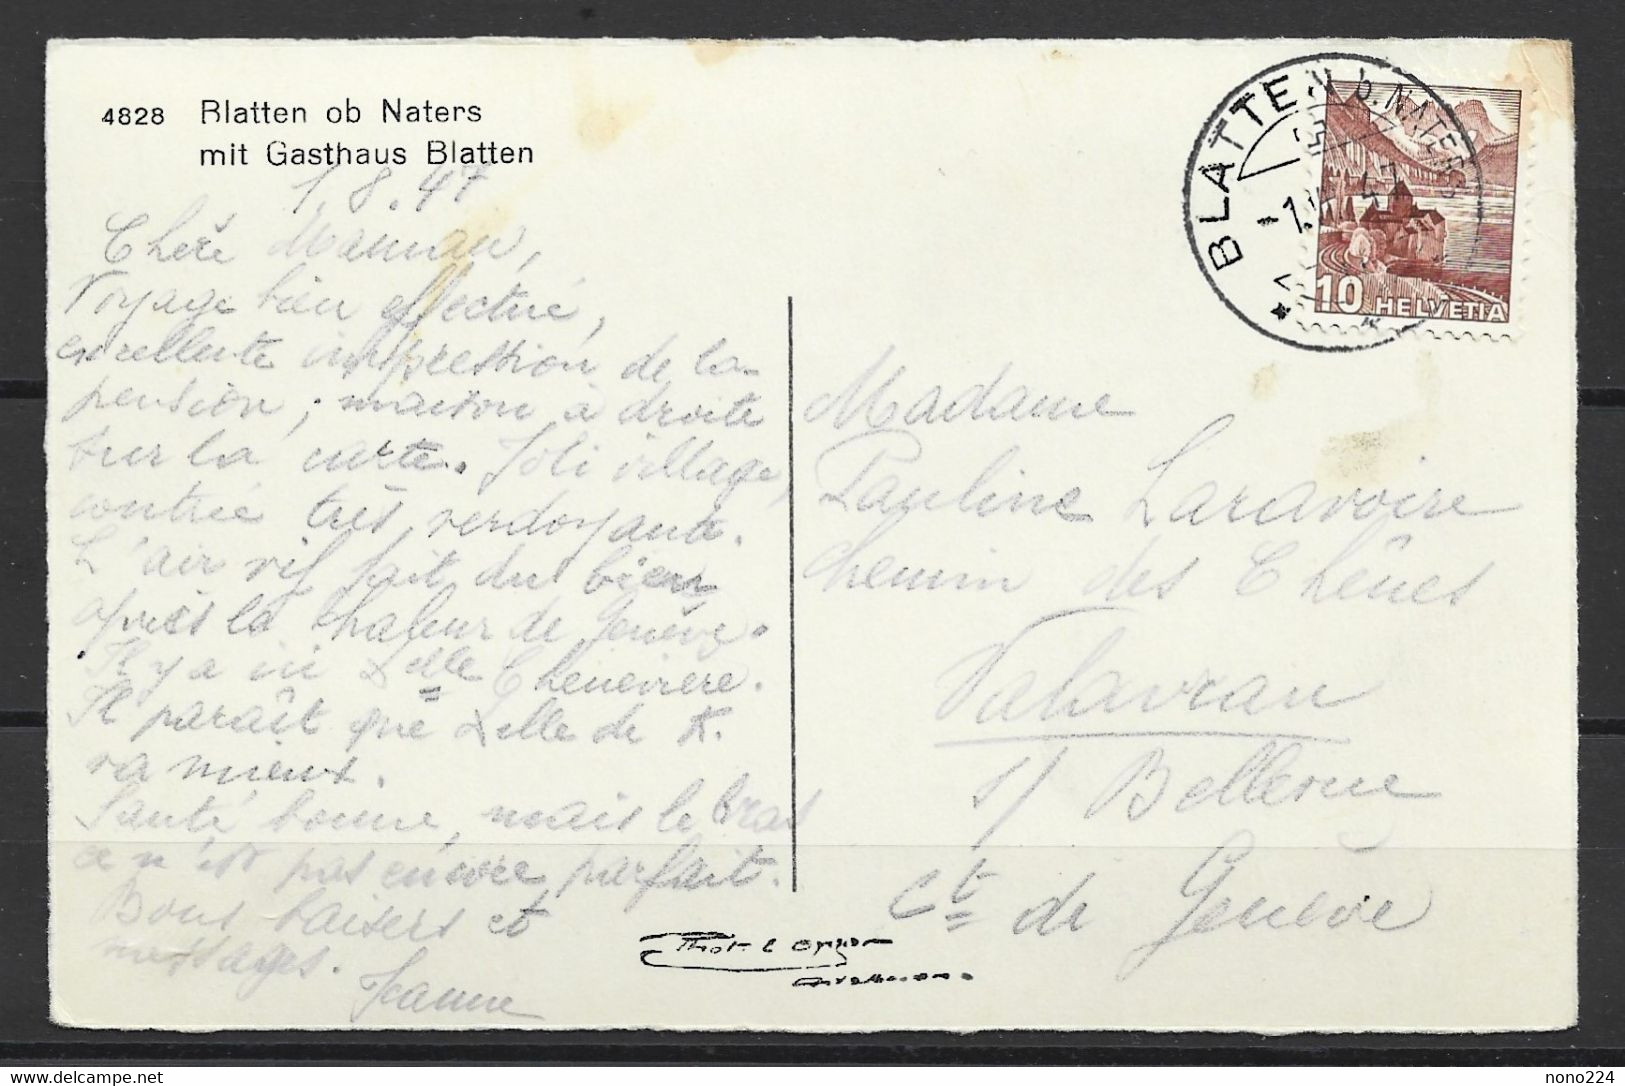 4828 Blatten ob Naters
mit Gasthaus Blatten
1.8.47
Chère Maman,
Voyage bien effectué,
excellente impression de la
pension ; maison à droite
sur la carte. Joli village,
contrée très verdoyante.
L'air vif fait du bien
après la chaleur de Genève.
Il y a ici Chenevière.
Il paraît que de K.
va mieux.
Santé bonne, mais le bras
ce n'est pas encore parfait.
Bons baisers et
messages.
Jeanne
BLATTEN b. NATERS
-1. 47
10 HELVETIA
Madame
Pauline Laravoire
chemin des Chênes
Valavran
s/ Bellevue
Ct de Genève
nono224
delcampe.net